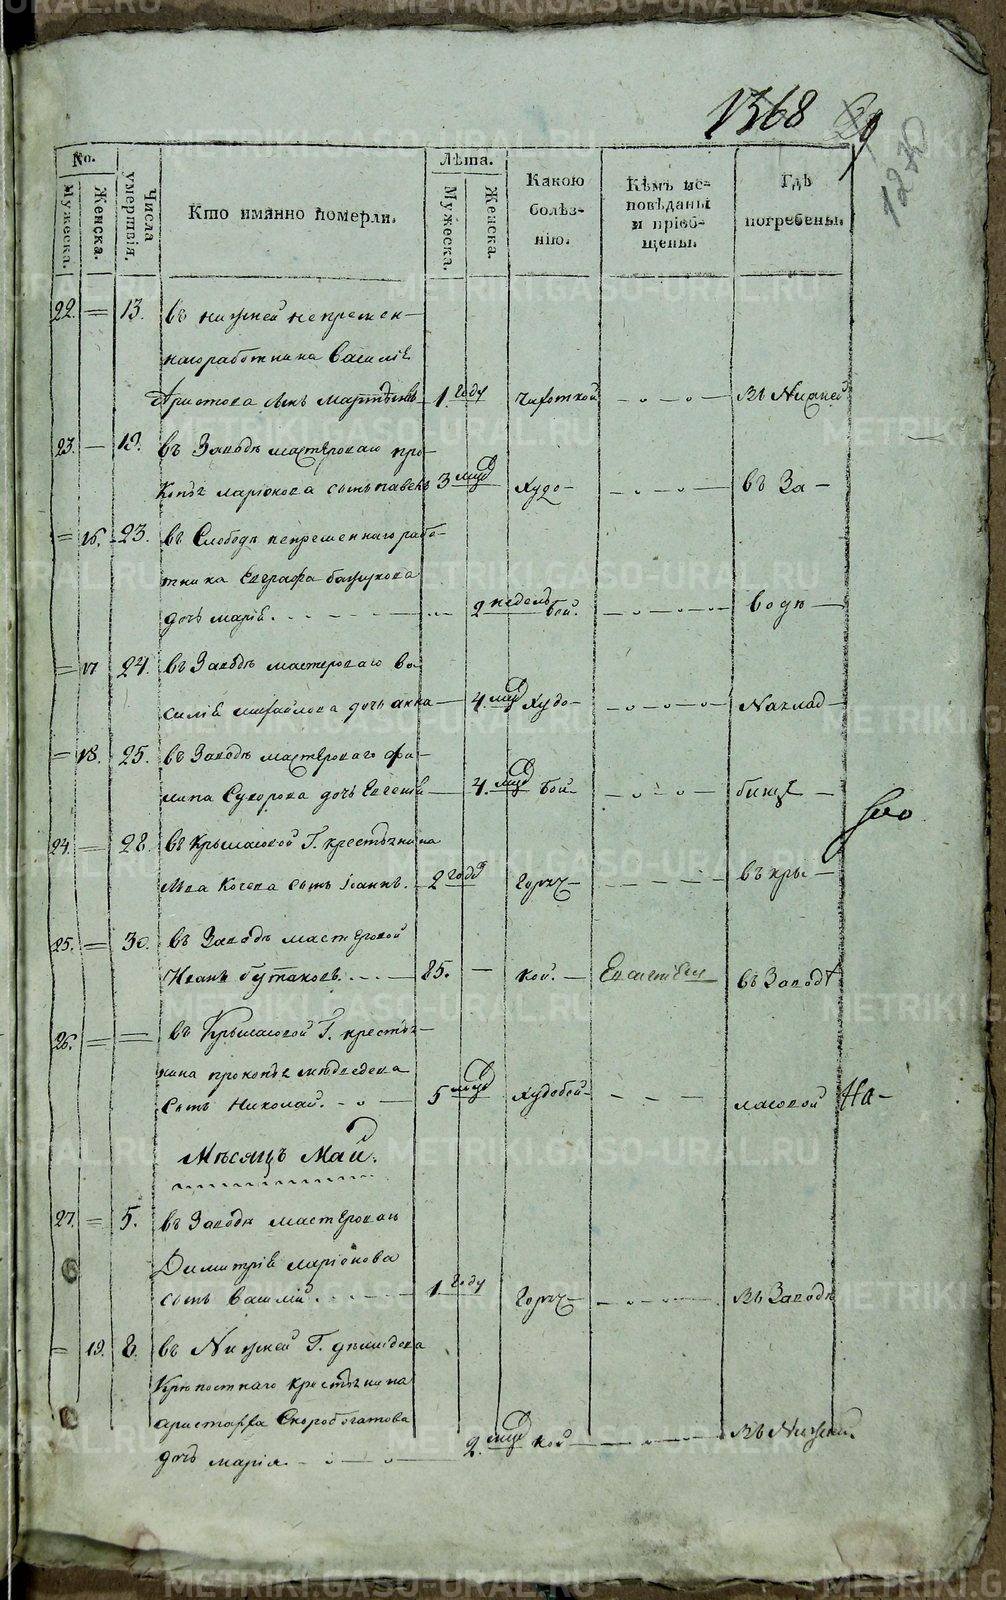 1368
1230
No.
Мужеска.
Женска.
Числа умертвія.
Кто имянно померли.
Лѣта.
Мужеска.
Женска.
Какою болѣз-
нію.
Кѣмъ ис-
повѣданы
и пріоб-
щены.
Гдѣ
погребены.
22. = 13. въ нижней непремен-
наго работника Василія
сынъ 1. году чахоткой въ Нижней
23. — 19. въ Заводѣ мастероваго про-
копья Ларіонова сынъ Павелъ 3 мцд худо- въ За-
= 16. 23. въ Слободѣ непременнаго рабо-
тника Евграфа
дочь Марія. 2 недель бой. водѣ
= 17 24. въ Заводѣ мастероваго Ва-
силія Михайлова дочь Анна 4. мцд худо- На клад-
= 18. 25. въ Заводѣ мастероваго фи-
липа Суворова дочь Евгенія 4. мцд бой- бищѣ
24. = 28. въ Крыласовой Г. крестьянина
сынъ Іоаннъ. 2 года горяч- въ кры-
25. = 30. въ Заводѣ мастеровой
Иванъ Бутаковъ. 85. — кой. въ Заводѣ
26. = = въ Крыласовой Г. кресть-
нина прокопья медведева
сынъ Николай. 5 мцд худобой- ласовой На-
Мѣсяцъ Май.
27. = 5. въ Заводѣ мастероваго
Димитрія Ларіонова
сынъ Василій. 1 году горяч- въ Заводѣ
= 19. 8. въ Нижней Г. демидова
крепостнаго крестьянина
аристарха Скоробогатова
дочь марія. 2. мцд кой въ Нижней.
METRIKI.GASO-URAL.RU